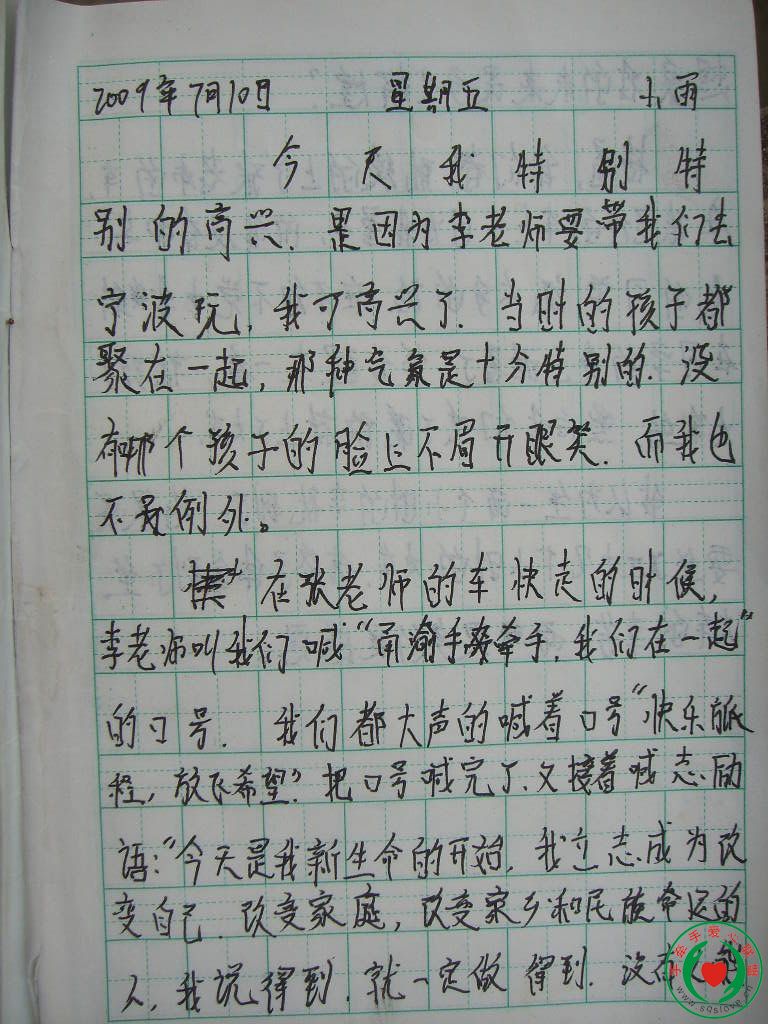 2009年7月10日 星期五 小雨
今天我特别特
别的高兴.是因为李老师要带我们去
宁波玩,我可高兴了.当时的孩子都
聚在一起,那种气氛是十分特别的.没
有哪个孩子的脸上不眉开眼笑.而我也
不是例外。
在张老师的车快走的时候,
李老师叫我们喊“甬渝手牵手,我们在一起”
的口号.我们都大声的喊着口号“快乐旅
程,放飞希望”把口号喊完了.又接着喊志励
语:“今天是我新生命的开始.我立志成为改
变自己.改变家庭,改变家乡和民族命运的
人,我说得到.就一定做得到.没有
手牵手爱心联盟
www.sqslove.cn